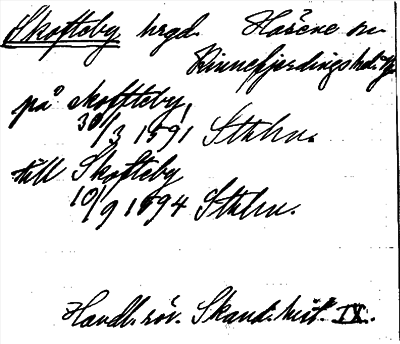 Skofteby hrgd. Härene sn
Kinnefjerdingshd. Vg.
på Skoffteby,
30/3 1591 Sthlm.
till Skofteby
10/9 1594 Sthlm.
Handl. rör. Skand. hist. IX.